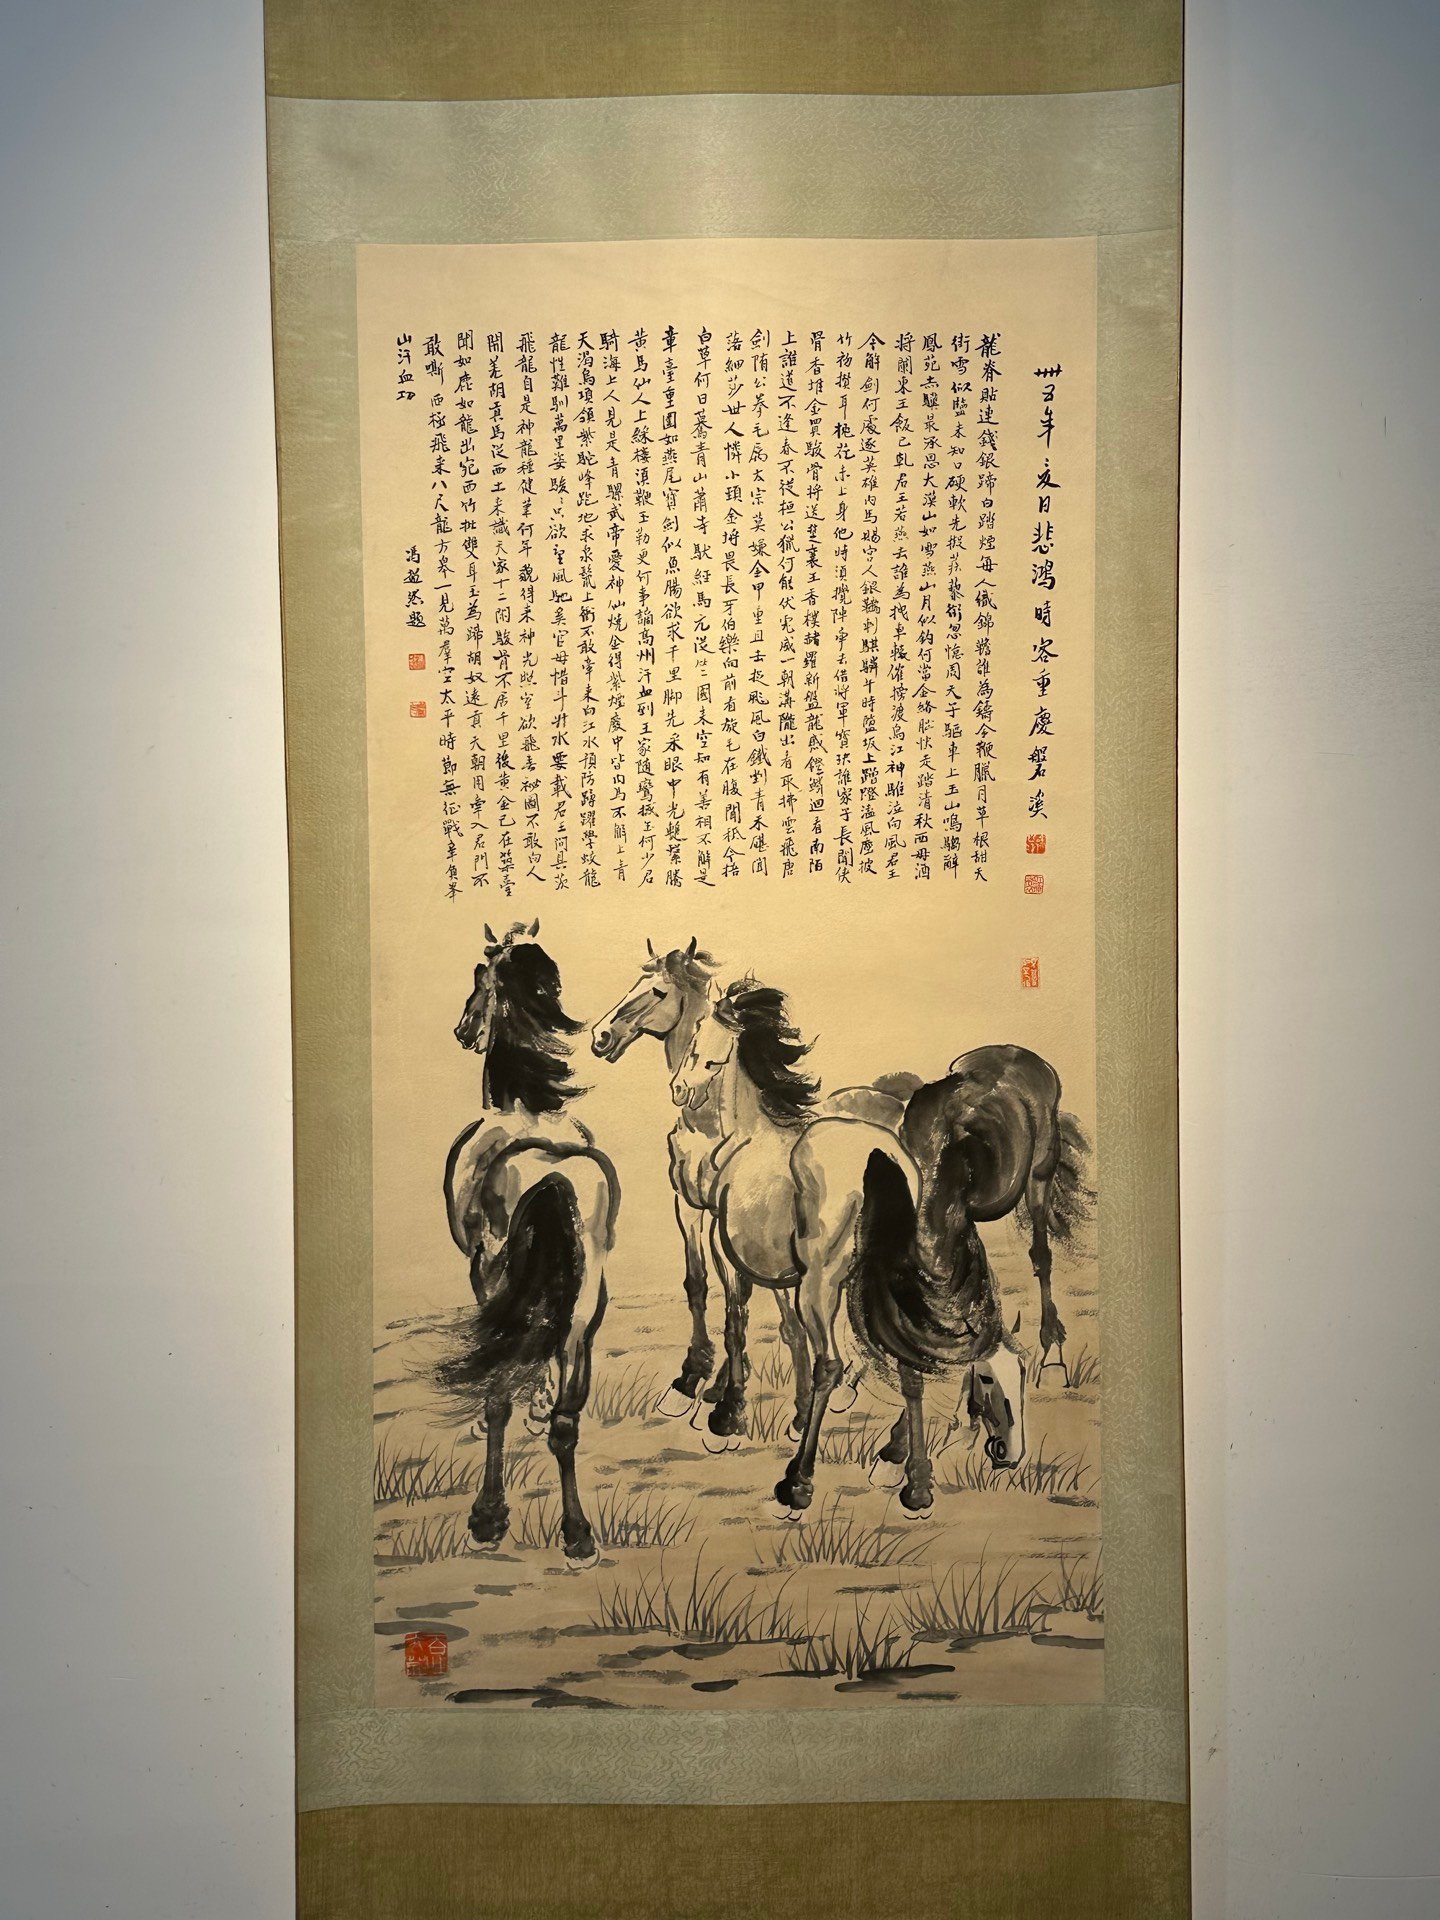 卅五年夏日悲鴻時客重慶磐溪
龍脊貼連錢銀蹄白踏煙無人織錦韂誰為鑄金鞭臘月草根甜天
街雪似鹽未知口硬軟先擬蒺藜銜忽憶周天子驅車上玉山鳴騶辭
鳳苑赤驥最承恩大漠山如雪燕山月似鈎何當金絡腦快走踏清秋西母酒
將闌東王飯已乾君王若燕去誰為拽車轅催榜渡烏江神騅泣向風君王
今解劍何處逐英雄內馬賜宮人銀韉刺騏驎午時鹽坂上蹭蹬溘風塵披
竹初攢耳桃花未上身他時須攪陣牽去借將軍寶玦誰家子長聞俠
骨香堆金買駿骨將送楚襄王香襆赭羅新盤龍蹙鐙鱗迴看南陌
上誰道不逢春不從桓公獵何能伏虎威一朝溝隴出看取拂雲飛唐
劍隋公拳毛屬太宗莫嫌金甲重且去捉飄風白鐵剉青禾碪間
落細莎世人憐小頸金埒畏長牙伯樂向前看旋毛在腹間秪今掊
白草何日驀青山蕭寺馱經馬元從竺國來空知有善相不解走
章臺重圍如燕尾寶劍似魚腸欲求千里腳先采眼中光暫繫騰
黃馬仙人上綵樓須鞭玉勒吏何事謫高州汗血到王家隨鸞撼玉珂少君
騎海上人見是青騾武帝愛神仙燒金得紫煙廄中皆肉馬不解上青
天渴烏項領縈駝峰跑地求泉鬣上衝不敢牽來向江水預防踴躍學蛟龍
龍性難馴萬里姿駿駿只欲望風馳奚官毋惜斗升水要載君王問具茨
飛龍自是神龍種健筆何年貌得來神光照室欲飛去祕圖不敢向人
開羌胡貢馬從西土未識天家十二閑駿骨不居千里後黃金已在築臺
聞如鹿如龍出宛西竹批雙耳玉為蹄胡奴遠貢天朝用牽入君門不
敢嘶西極飛來八尺龍方皋一見萬群空太平時節無征戰辜負岸
山汗血功
馮超然題